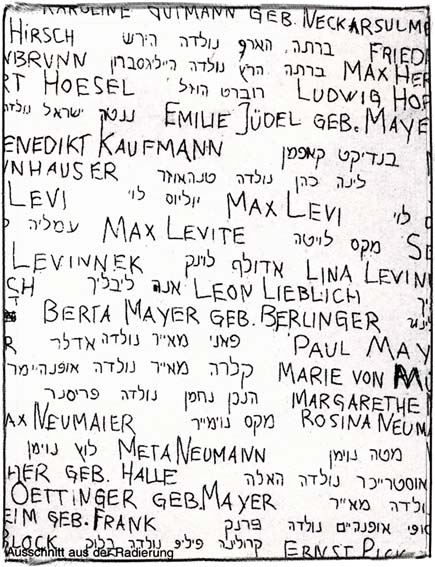 KAROLINE GUTMANN GEB. NECKARSULM
HIRSCH ברתה הארף נולדה הירש FRIED
NBRUNN ברתה הרץ נולדה היילגסברון MAX HER
RT HOESEL רוברט הוזל LUDWIG HOF
ננטה ישראל נולדה EMILIE JÜDEL GEB. MAYE
ENEDIKT KAUFMANN בנדיקט קאופמן
NHAUSER לינה כהן נולדה טנהאוזר
LEVI יוליוס לוי MAX LEVI לוי
עמליה MAX LEVITE מקס לויטה SE
LEVINNEK אדולף לוינק LINA LEVIN
CH אנה ליבליך LEON LIEBLICH יך
BERTA MAYER GEB. BERLINGER
R פאני מאייר נולדה אדלר PAUL MAY
קלרה מאייר נולדה אופנהיימר MARIE VON MU
נחמן נולדה פריסנר MARGARETHE
AX NEUMAIER מקס נוימייר ROSINA NEUMA
לוץ נוימן META NEUMANN מטה נוימן
HER GEB. HALLE אוסטרייכר נולדה האלה
OETTINGER GEB. MAYER ולדה מאייר
EIM GEB. FRANK ופי אופנהיים נולדה פרנק
BLOCK קרולינה פיליפ נולדה בלוק ERNST PICK
Ausschnitt aus der Radierung